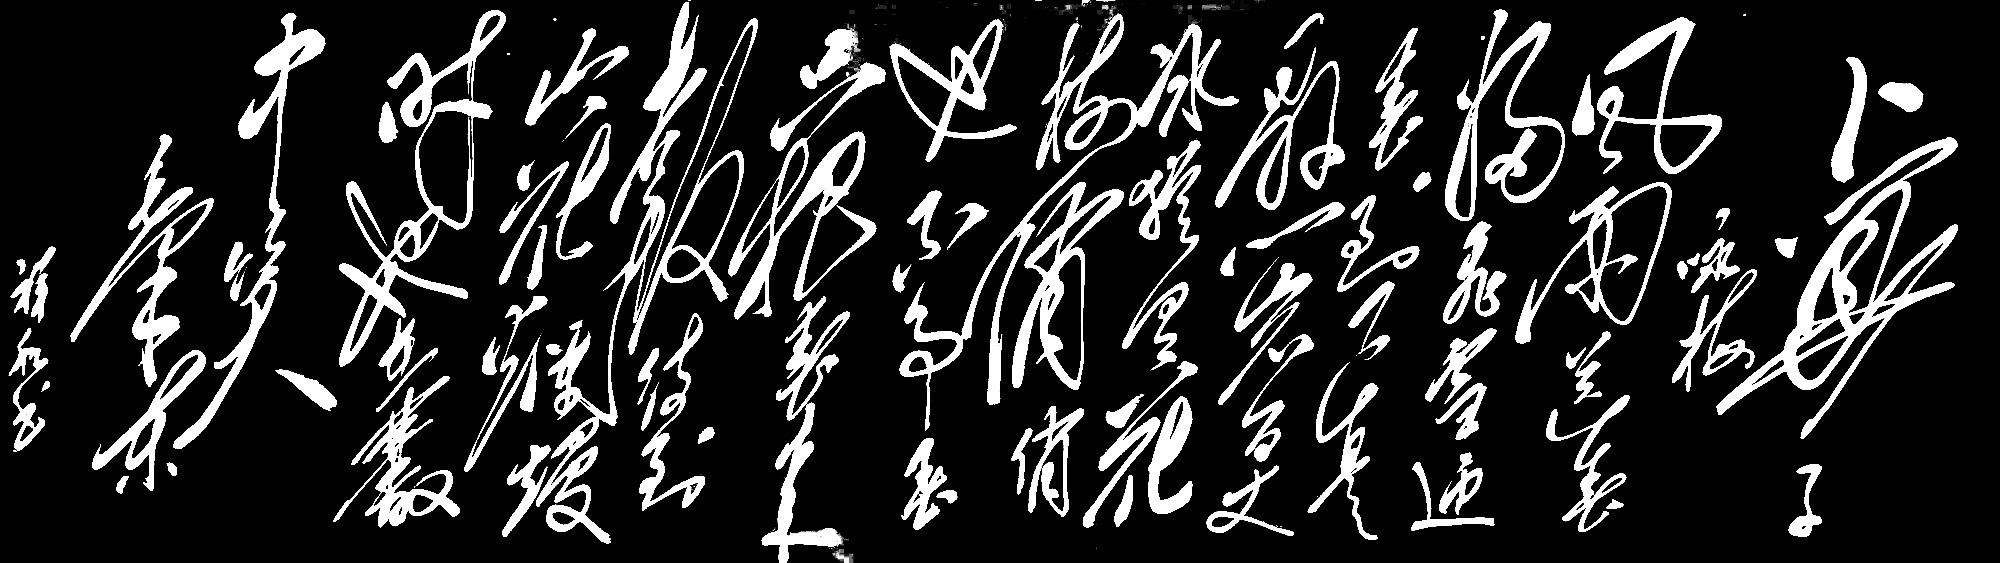 卜算子
咏梅
风雨送春
归飞雪迎
春到已是
悬崖百丈
冰犹有花
枝俏俏
也不争春
只把春来
报待到
山花烂熳
时她在丛
中笑